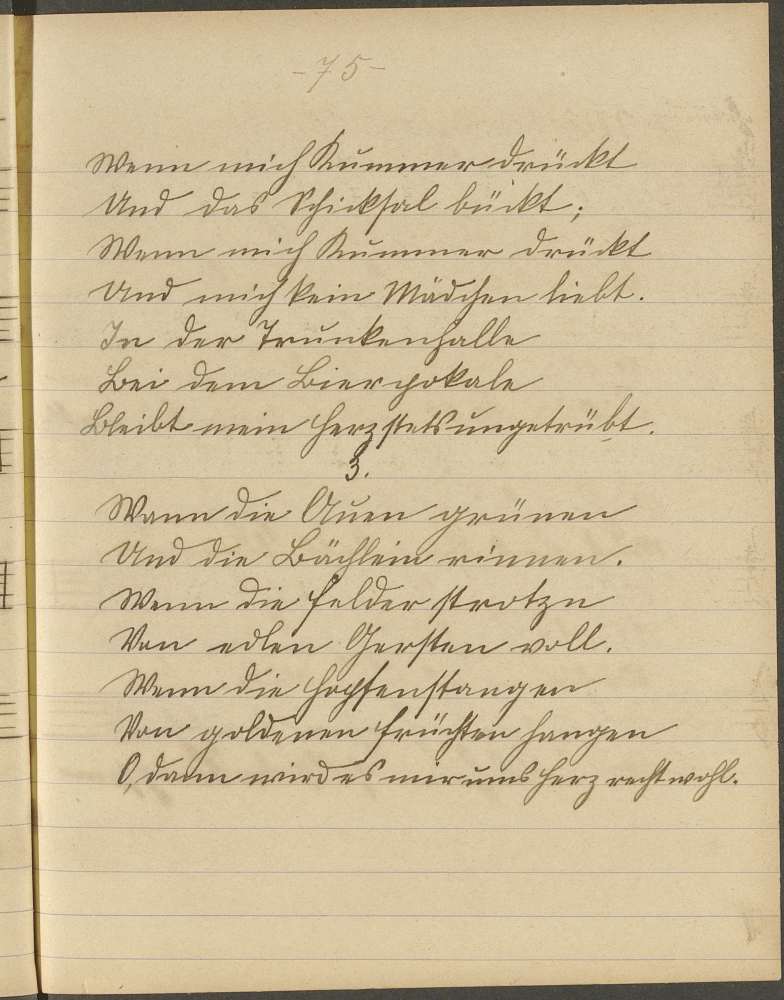 -75-
Wenn mich Kummer drückt
Und das Schicksal bückt;
Wenn mich Kummer drückt
Und mich kein Mädchen liebt.
In der Trunkenhalle
Bei dem Bierpokale
Bleibt mein Herz stets ungetrübt.
3.
Wann die Auen grünen
Und die Bächlein rinnen.
Wenn die Felder strotzn
Von edlen Gersten voll.
Wenn die Hopfenstangen
Von goldenen Früchten hangen
O, dann wird es mir ums Herz recht wohl.